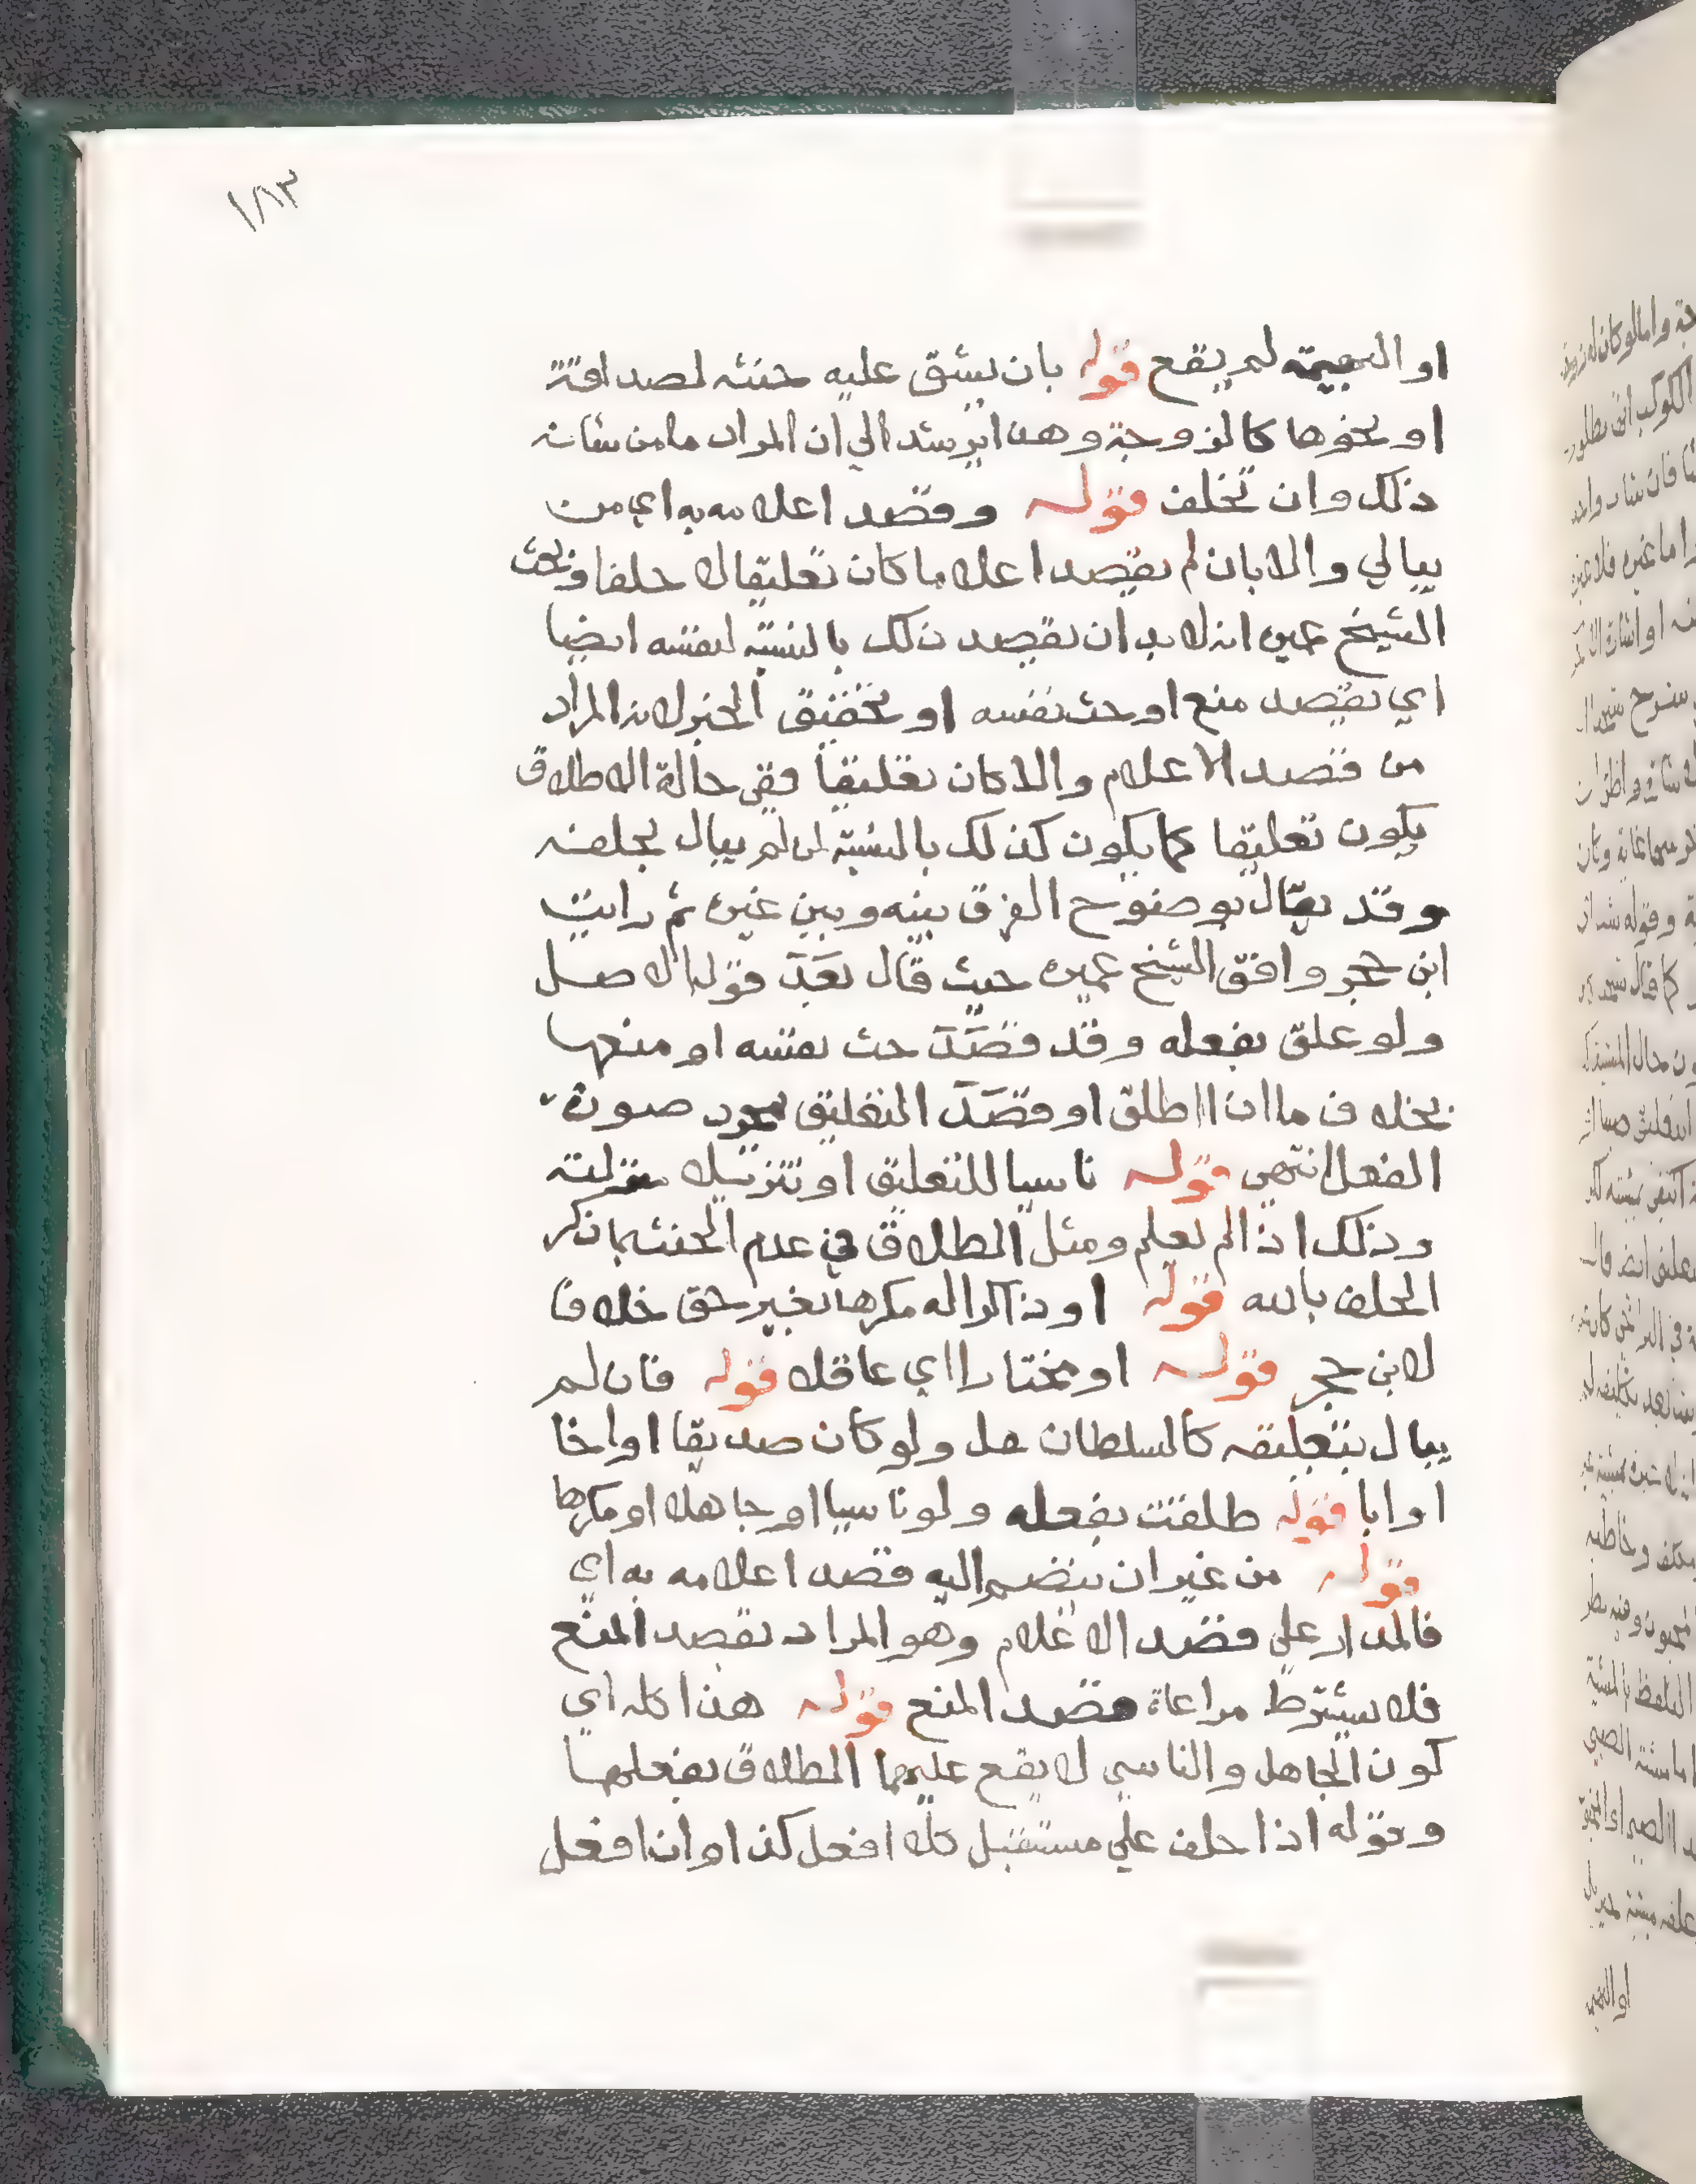 ١٨٣
او البهيمة لم يقع قوله بان يشق عليه حنثه لصداقة
او نحوها كالزوجة وهذا يرشد الي ان المراد ما من شانه
ذلك وان تخلف قوله وقصد اعلامه به اي من
يبالي والا بان لم يقصد اعلاما كان تعليقا لا حلفا وبحث
الشيخ عميره انه لا بد ان يقصد ذلك بالنسبة لنفسه ايضا
اي يقصد منع او حث نفسه او تحقيق الخبر لانه المراد
من قصد الاعلام والا كان تعليقا ففي حالة الاطلاق
يكون تعليقا كما يكون كذلك بالنسبة لمن لم يبال بحلفه
وقد يقال بوضوح الفرق بينه وبين غيره ثم رايت
ابن حجر وافق الشيخ عميره حيث قال بعد قول الاصل
ولو علق بفعله وقد قصد حث نفسه او منعها
بخلاف ما اذا اطلق او قصد التعليق بمجرد صورة
الفعل انتهي قوله ناسيا للتعليق او تنزيله منزلته
وذلك اذا لم يعلم ومثل الطلاق في عدم الحنث بما ذكر
الحلف بالله قوله او ذاكرا له مكرها بغير حق خلافا
لابن حجر قوله او مختارا اي عاقلا قوله فان لم
يبال بتعليقه كالسلطان هل ولو كان صديقا او اخا
او ابا قوله طلقت بفعله ولو ناسيا او جاهلا او مكرها
قوله من غير ان ينضم اليه قصد اعلامه به اي
فالمدار علي قصد الاعلام وهو المراد بقصد المنع
فلا يشترط مراعاة قصد المنع قوله هذا كله اي
كون الجاهل والناسي لا يقع عليهما الطلاق بفعلهما
وقوله اذا حلف علي مستقبل كلا افعل كذا او ان افعل